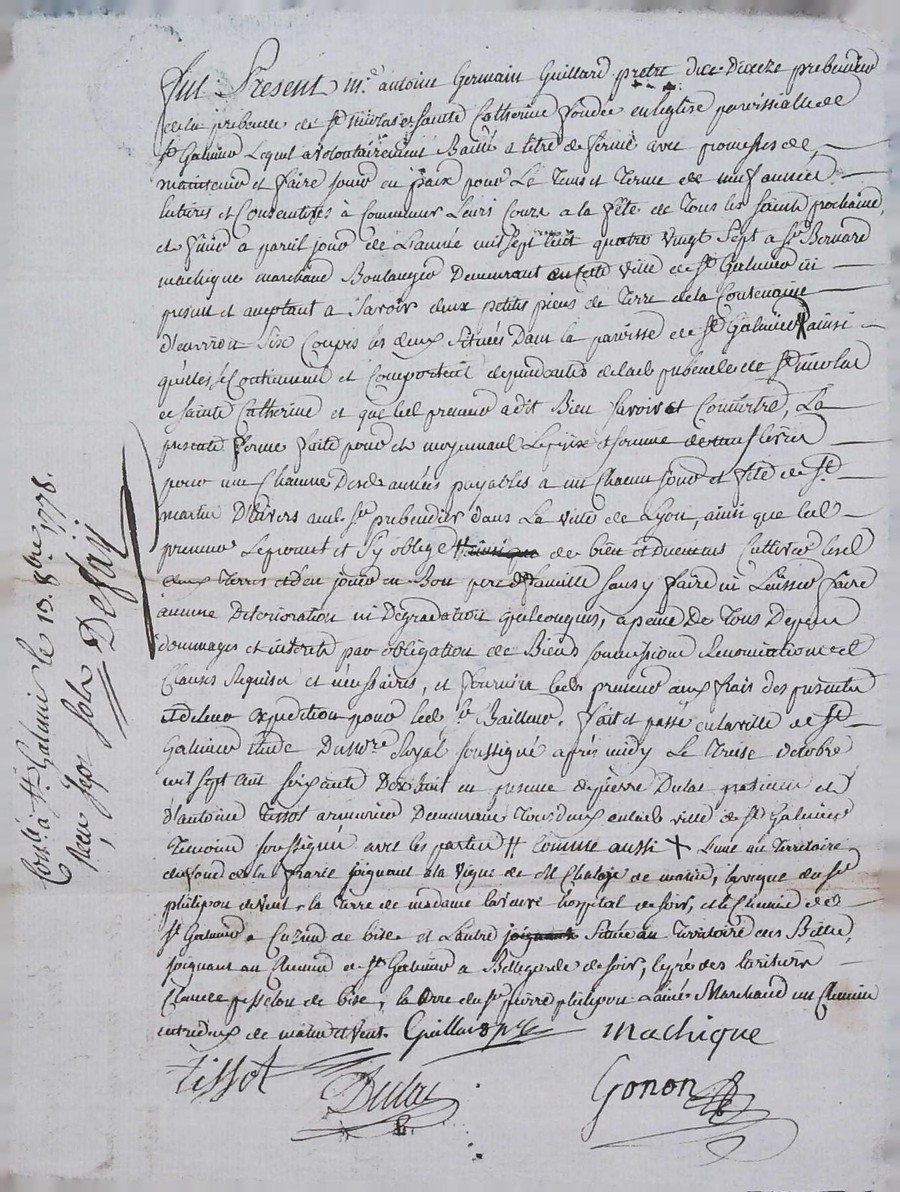 fut Present m.e antoine Germain Guillard pretre prebendier
de la prebende de St nicolas et sainte Catherine fondée en leglise parroissialle de
St Galmier Lequel a volontairement Baillé a titre de ferme avec promesses de
maintenir et faire jouir en paix pour Le Tems et Terme de neuf années
entieres et Consecutives à Commencer Leurs Cours a la fête de Tous les saints prochaine,
et finir a pareil jour de L'année mil sept cent quatre vingt sept a Sr Bernard
machique marchand Boulanger Demeurant en cette ville de St Galmier ici
present et aceptant a savoir deux petites pieces de Terre de la Contenance
d'environ six Coupes les deux situées Dans la parroisse de St Galmier ainsi
quelles se Continuent et Comportent dependantes de lad. prebende de St nicolas
et sainte Catherine et que led preneur a dit Bien savoir et Connoitre, La
presente ferme faite pour et moyennant Le prix et somme de livres
pour une Chacune Desd. années payables a un Chacun jour et fête de St
martin D'hivers aud. Sr prebendier dans La ville de Lyon, ainsi que led
preneur Le promet et s'y oblige # de bien et Duement Cultiver lesd
deux Terres et d'en jouir en Bon pere de famille sans y faire ni Laisser faire
aucune Deterioration ni Degradation quelconques, a peine de Tous Depens
dommages et interets par obligation de Biens soumissions Renonciations et
Clauses Requises et necessaires, et fournira led. preneur aux frais des presentes
et de leur expedition pour led. Sr Bailleur. fait et passé en la ville de St
Galmier Etude Du no.re Royal soussigné après midy Le Treise octobre
mil sept cent soixante Dixhuit en presence de pierre Dulac praticien et
d'antoine Tissot armurier Demeurants Tous deux en lad. ville de St Galmier
Temoins soussignés avec les parties # Comme aussi + L'une au Territoire
du fond de la joignant à la Vigne de M. de matin, la vigne du Sr
philipon de vent, la Terre de madame l'hôpital de soir, et le Chemin de
St Galmier a Cuzieu de bise. et L'autre située au Territoire des
joignant au Chemin de St Galmier a Bellegarde de soir,
Claude de bise, la Terre du Sr pierre philipon L'ainé Marchand un Chemin
entre deux de matin et vent. Guillard ptre machique
Tissot Dulac Gonon
Conlé à St Galmier le 13. 8bre 1778.
Reçu
Defay